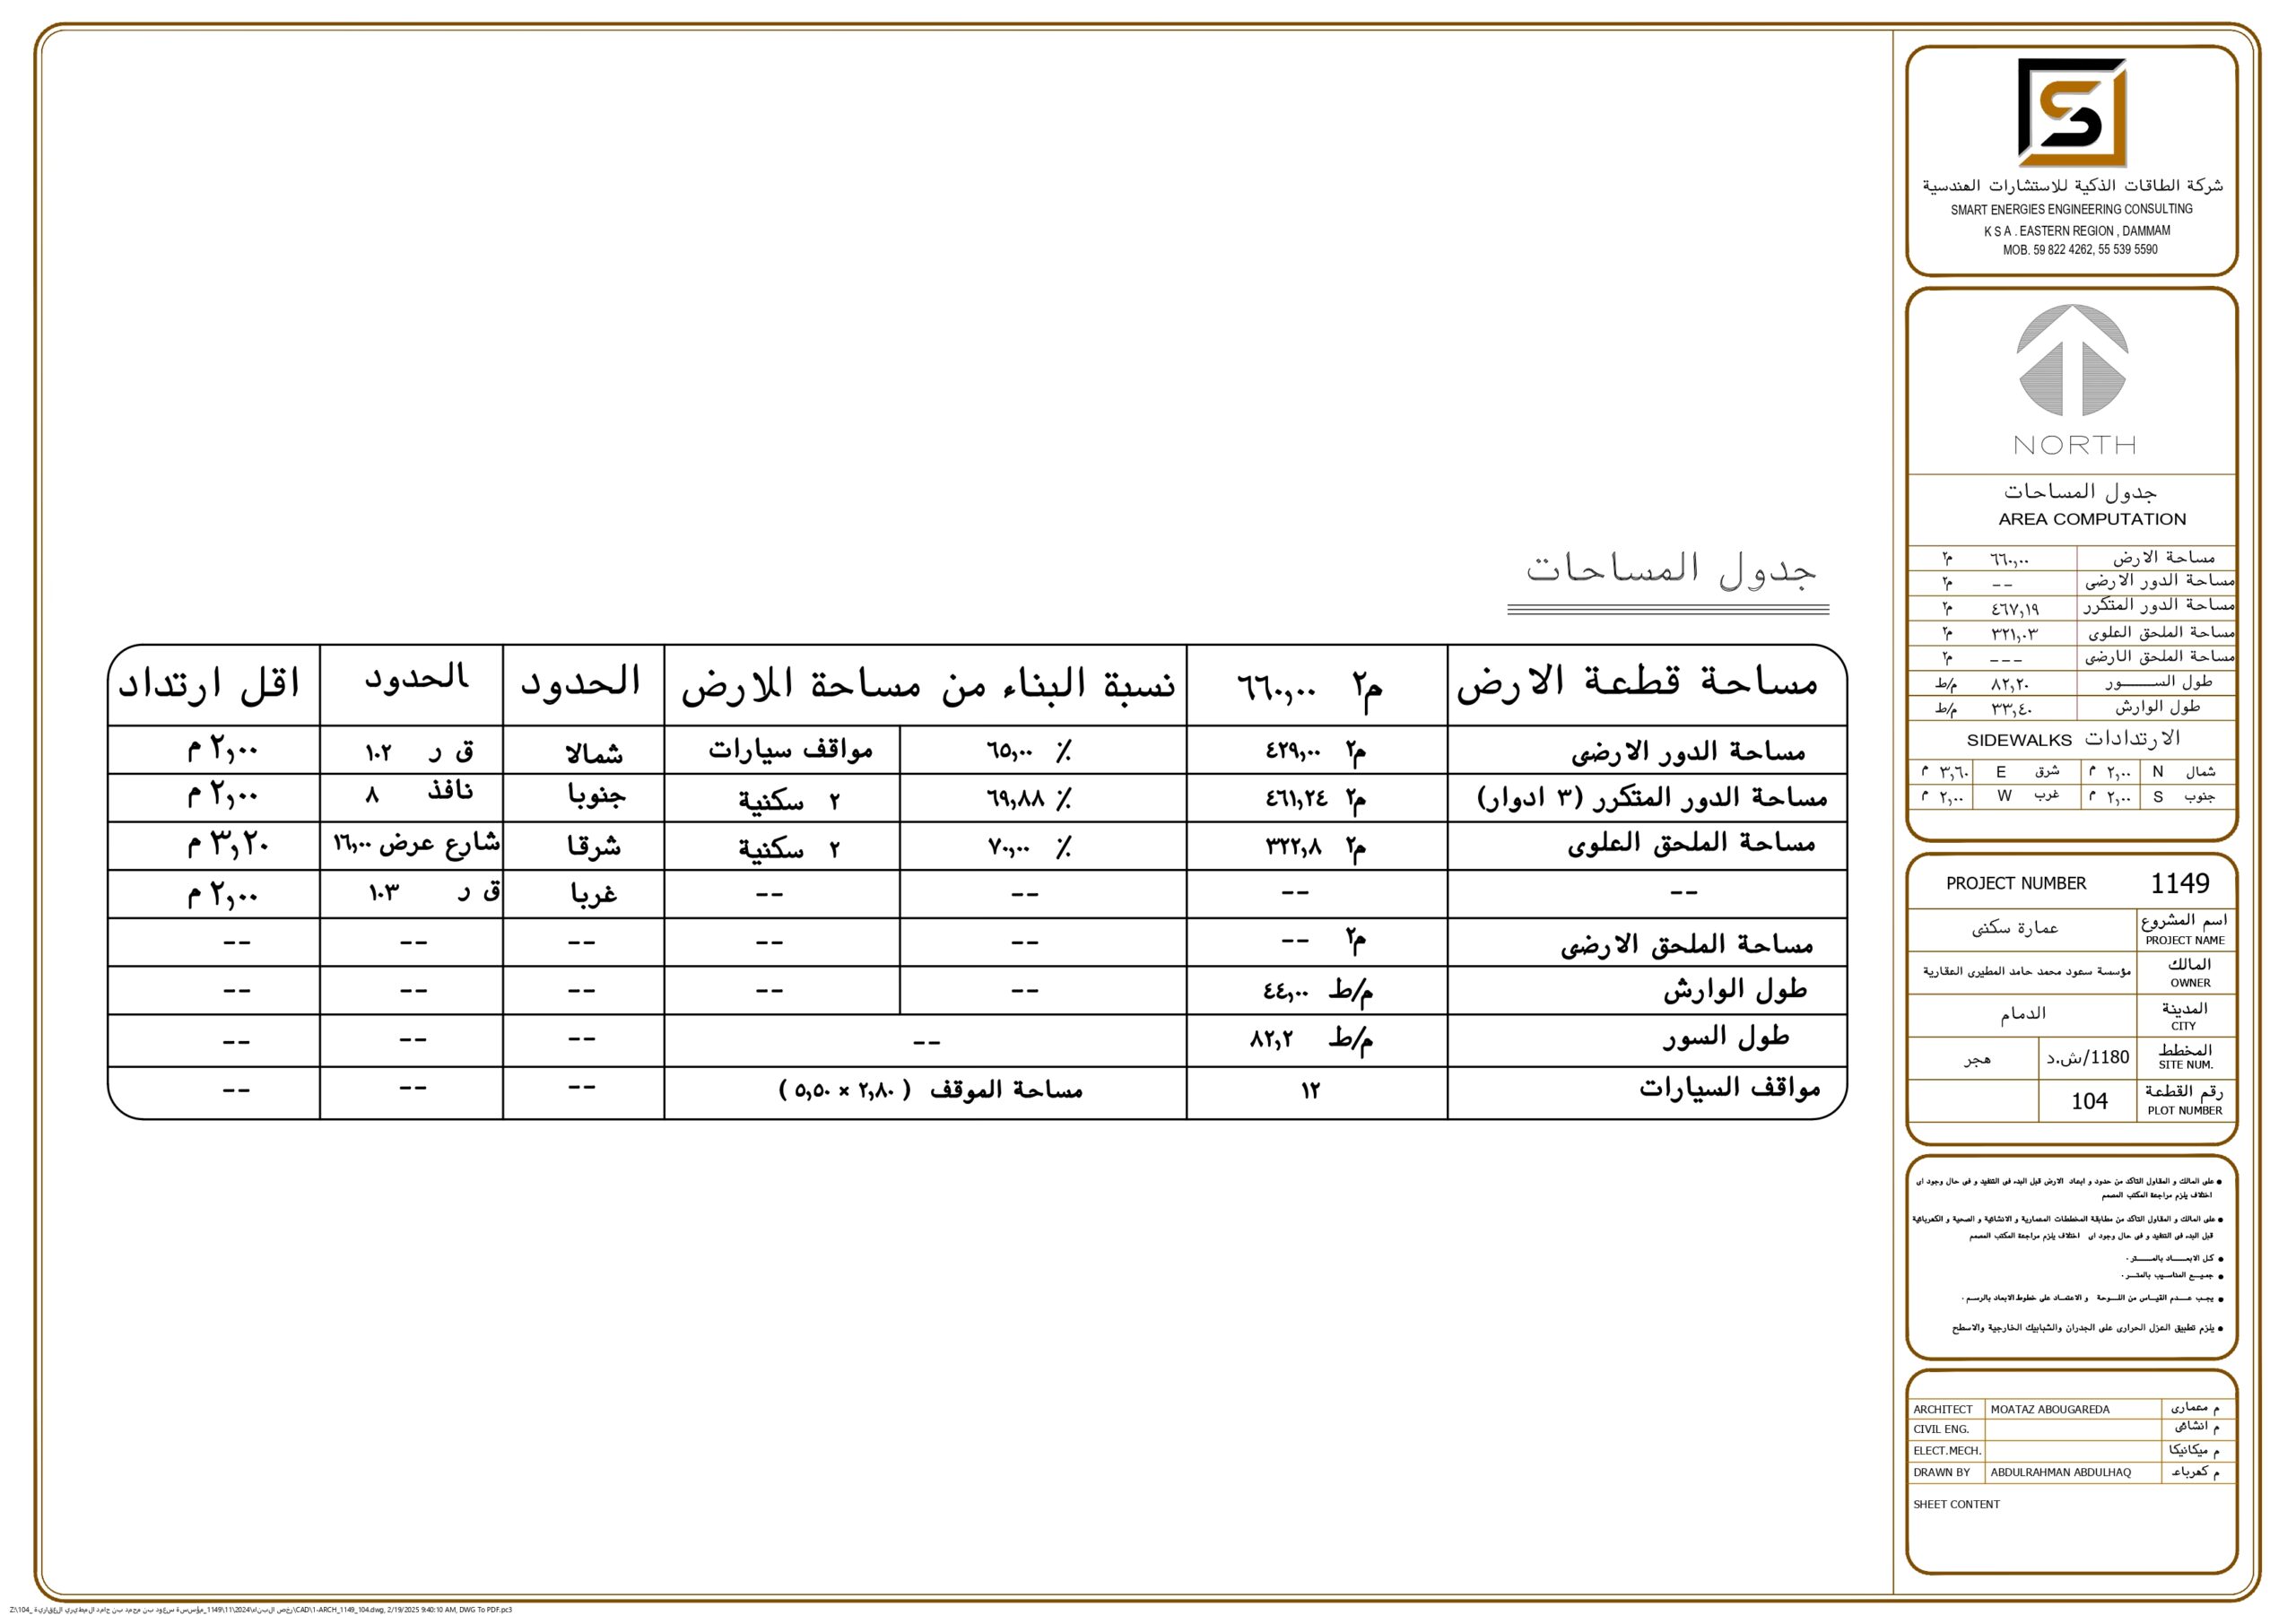 جدول المساحات
مساحة قطعة الارض ٦٦٠,٠٠ م٢ نسبة البناء من مساحة اللارض الحدود الحدود اقل ارتداد
مساحة الدور الارضى ٤٢٩,٠٠ م٢ ٦٥,٠٠ ٪ مواقف سيارات شمالا ق ر ١٠٢ ٢,٠٠ م
مساحة الدور المتكرر (٣ ادوار) ٤٦١,٢٤ م٢ ٦٩,٨٨ ٪ ٢ سكنية جنوبا نافذ ٨ ٢,٠٠ م
مساحة الملحق العلوى ٣٢٢,٨ م٢ ٧٠,٠٠ ٪ ٢ سكنية شرقا شارع عرض ١٦,٠٠ ٣,٢٠ م
-- -- -- -- غربا ق ر ١٠٣ ٢,٠٠ م
مساحة الملحق الارضى -- م٢ -- -- -- -- --
طول الوارش ٤٤,٠٠ م/ط -- -- -- -- --
طول السور ٨٢,٢ م/ط -- -- -- --
مواقف السيارات ١٢ مساحة الموقف ( ٢,٨٠ × ٥,٥٠ ) -- -- --
شركة الطاقات الذكية للاستشارات الهندسية
SMART ENERGIES ENGINEERING CONSULTING
K S A . EASTERN REGION , DAMMAM
MOB. 59 822 4262, 55 539 5590
NORTH
جدول المساحات
AREA COMPUTATION
مساحة الارض ٦٦٠,٠٠ م٢
مساحة الدور الارضى -- م٢
مساحة الدور المتكرر ٤٦٧,١٩ م٢
مساحة الملحق العلوى ٣٢١,٠٣ م٢
مساحة الملحق الارضى --- م٢
طول الســـور ٨٢,٢٠ م/ط
طول الوارش ٣٣,٤٠ م/ط
الارتدادات SIDEWALKS
شمال N ٢,٠٠ م شرق E ٣,٦٠ م
جنوب S ٢,٠٠ م غرب W ٢,٠٠ م
PROJECT NUMBER 1149
اسم المشروع عمارة سكنى
PROJECT NAME
المالك مؤسسة سعود محمد حامد المطيرى العقارية
OWNER
المدينة الدمام
CITY
المخطط 1180/ش.د هجر
SITE NUM.
رقم القطعة 104
PLOT NUMBER
● على المالك و المقاول التاكد من حدود و ابعاد الارض قبل البدء فى التنفيد و فى حال وجود اى
اختلاف يلزم مراجعة المكتب المصمم
● على المالك و المقاول التاكد من مطابقة المخططات المعمارية و الانشائية و الصحية و الكهربائية
قبل البدء فى التنفيد و فى حال وجود اى اختلاف يلزم مراجعة المكتب المصمم
● كل الابعـــاد بالمـــتر .
● جميـع المناسيب بالمتـــر .
● يجب عـــدم القيـــاس من اللـــوحة و الاعتمـــاد على خطوط الابعاد بالرسـم .
● يلزم تطبيق العزل الحرارى على الجدران والشبابيك الخارجية والاسطح
ARCHITECT MOATAZ ABOUGAREDA م معمارى
CIVIL ENG. م انشائى
ELECT.MECH. م ميكانيكا
DRAWN BY ABDULRAHMAN ABDULHAQ م كهرباء
SHEET CONTENT